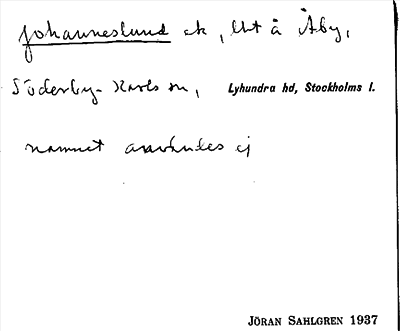 Johanneslund ek, lht å Åby,
Söderby-Karls sn, Lyhundra hd, Stockholms l.
namnet användes ej
JÖRAN SAHLGREN 1937